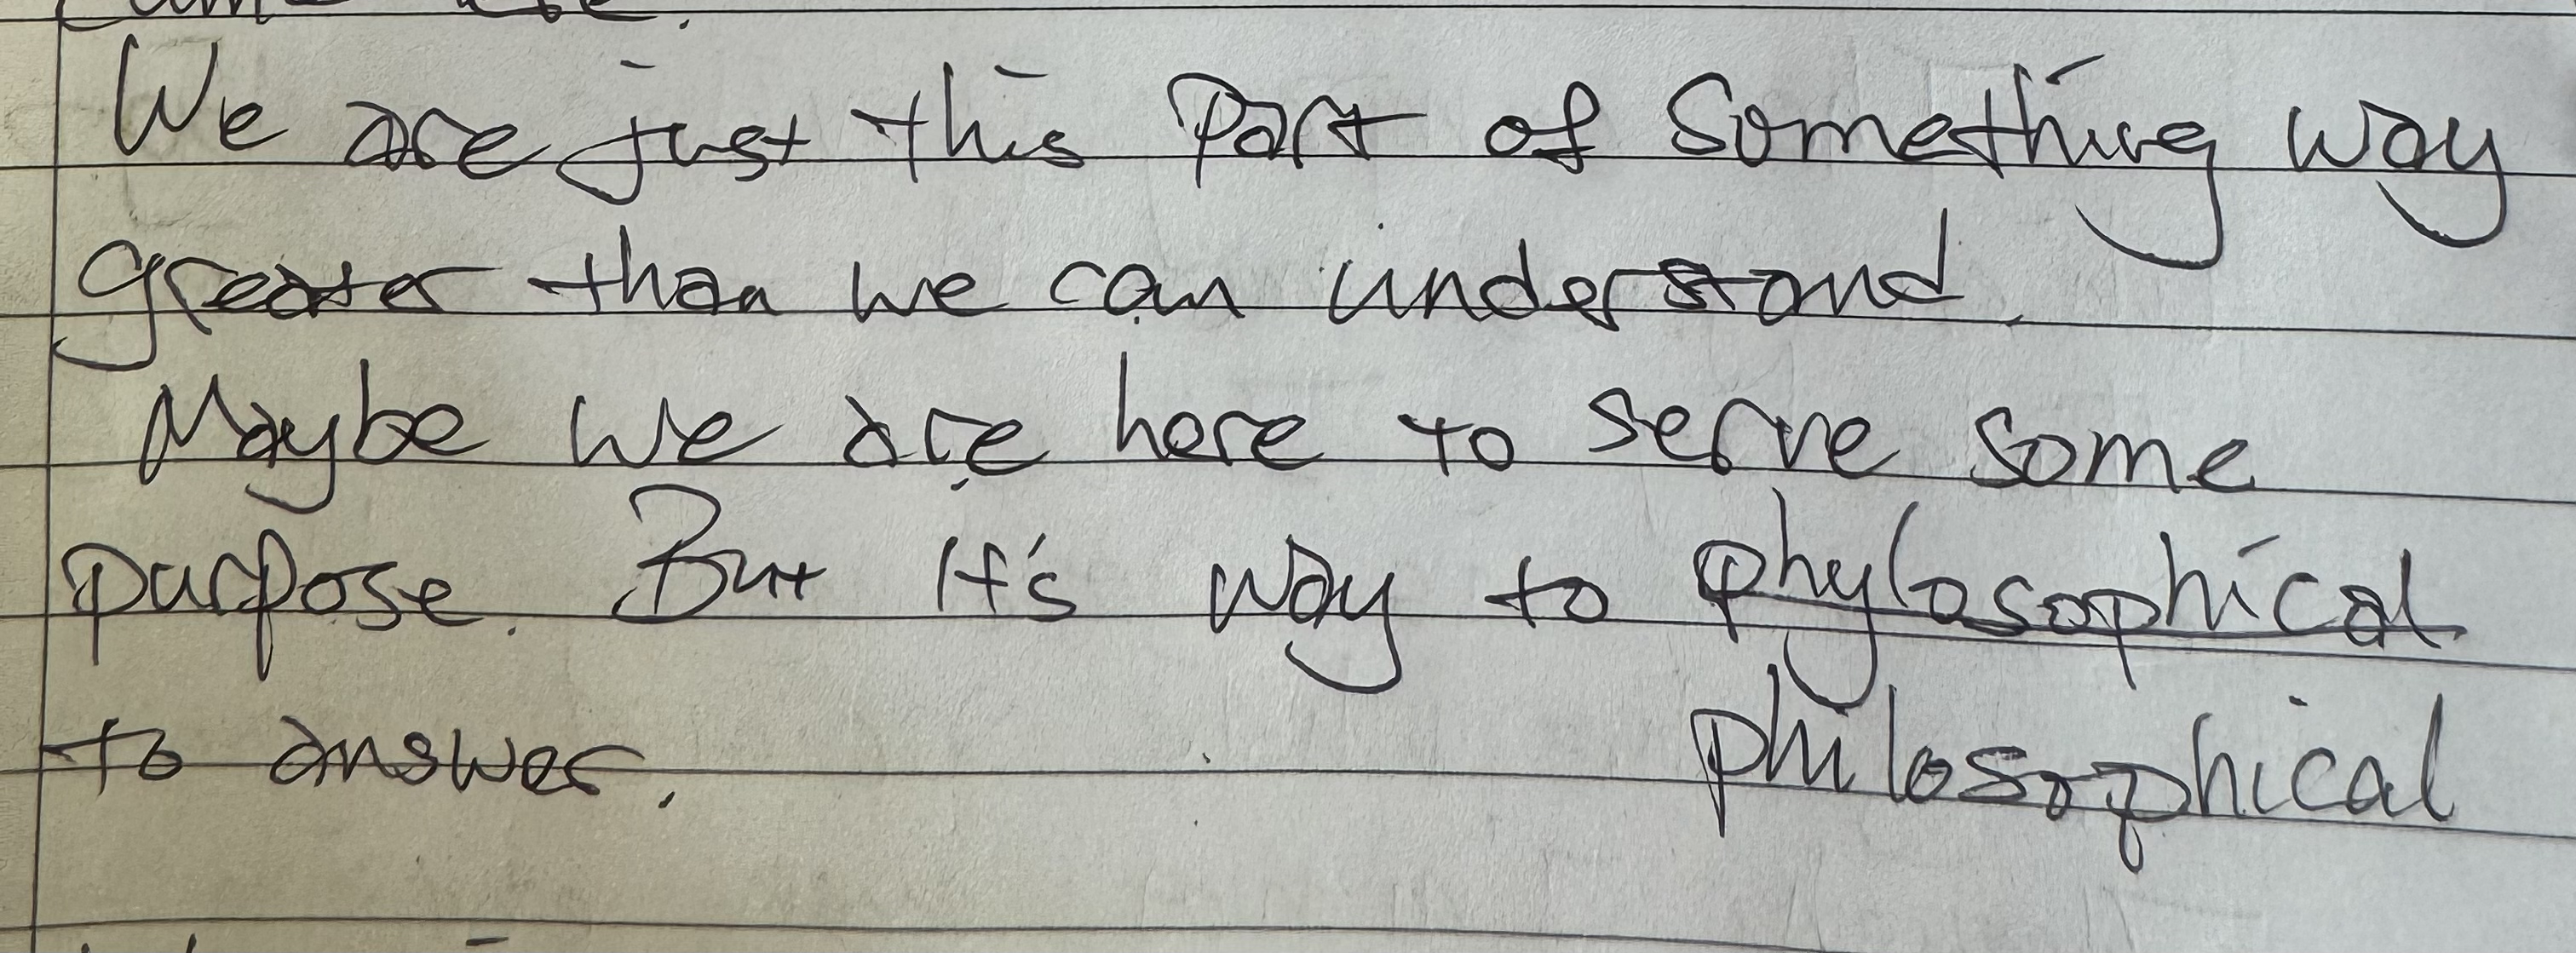 We are just this Part of something way
greater than we can understand.
Maybe we are here to serve some
purpose. But it's way to phylosophical
philosophical
to answer.